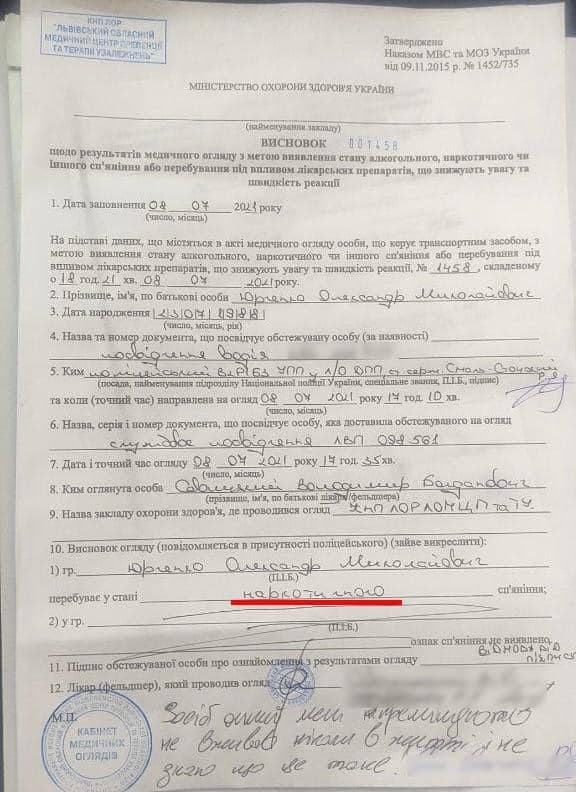 КНП ЛОР
"ЛЬВІВСЬКИЙ ОБЛАСНИЙ
МЕДИЧНИЙ ЦЕНТР ПРЕВЕНЦІЇ
ТА ТЕРАПІЇ УЗАЛЕЖНЕНЬ"
Затверджено
Наказом МВС та МОЗ України
від 09.11.2015 р. № 1452/735
МІНІСТЕРСТВО ОХОРОНИ ЗДОРОВ'Я УКРАЇНИ
(найменування закладу)
ВИСНОВОК 001458
щодо результатів медичного огляду з метою виявлення стану алкогольного, наркотичного чи
іншого сп'яніння або перебування під впливом лікарських препаратів, що знижують увагу та
швидкість реакції
1. Дата заповнення 08 07 2021 року
(число, місяць)
На підставі даних, що містяться в акті медичного огляду особи, що керує транспортним засобом, з
метою виявлення стану алкогольного, наркотичного чи іншого сп'яніння або перебування під
впливом лікарських препаратів, що знижують увагу та швидкість реакції, № 1458, складеному
о 18 год. 21 хв. 08 07 2021 року.
2. Прізвище, ім'я, по батькові особи Юрченко Олександр Миколайович
3. Дата народження 23071988
(число, місяць, рік)
4. Назва та номер документа, що посвідчує обстежувану особу (за наявності)
посвідчення водія
5. Ким поліцейський УПП у л/о ДПП
(посада, найменування підрозділу Національної поліції України, спеціальне звання, П.І.Б., підпис)
та коли (точний час) направлена на огляд 08 07 2021 року 17 год. 10 хв.
(число, місяць)
6. Назва, серія і номер документа, що посвідчує особу, яка доставила обстежуваного на огляд
службове посвідчення ЛВП 098561
7. Дата і точний час огляду 08 07 2021 року 17 год. 35 хв.
(число, місяць)
8. Ким оглянута особа Володимир Богданович
(прізвище, ім'я, по батькові лікаря/фельдшера)
9. Назва закладу охорони здоров'я, де проводився огляд КНП ЛОР ЛОМЦП та ТУ
10. Висновок огляду (повідомляється в присутності поліцейського) (зайве викреслити):
1) гр. Юрченко Олександр Миколайович
(П.І.Б.)
перебуває у стані наркотичного сп'яніння;
2) у гр.
(П.І.Б.)
ознак сп'яніння не виявлено.
11. Підпис обстежуваної особи про ознайомлення з результатами огляду відмова від підпису
12. Лікар (фельдшер), який проводив огляд
М.П.
КАБІНЕТ
МЕДИЧНИХ
ОГЛЯДІВ
Засіб мені
не вживав ніколи в житті і не
знаю що це таке.